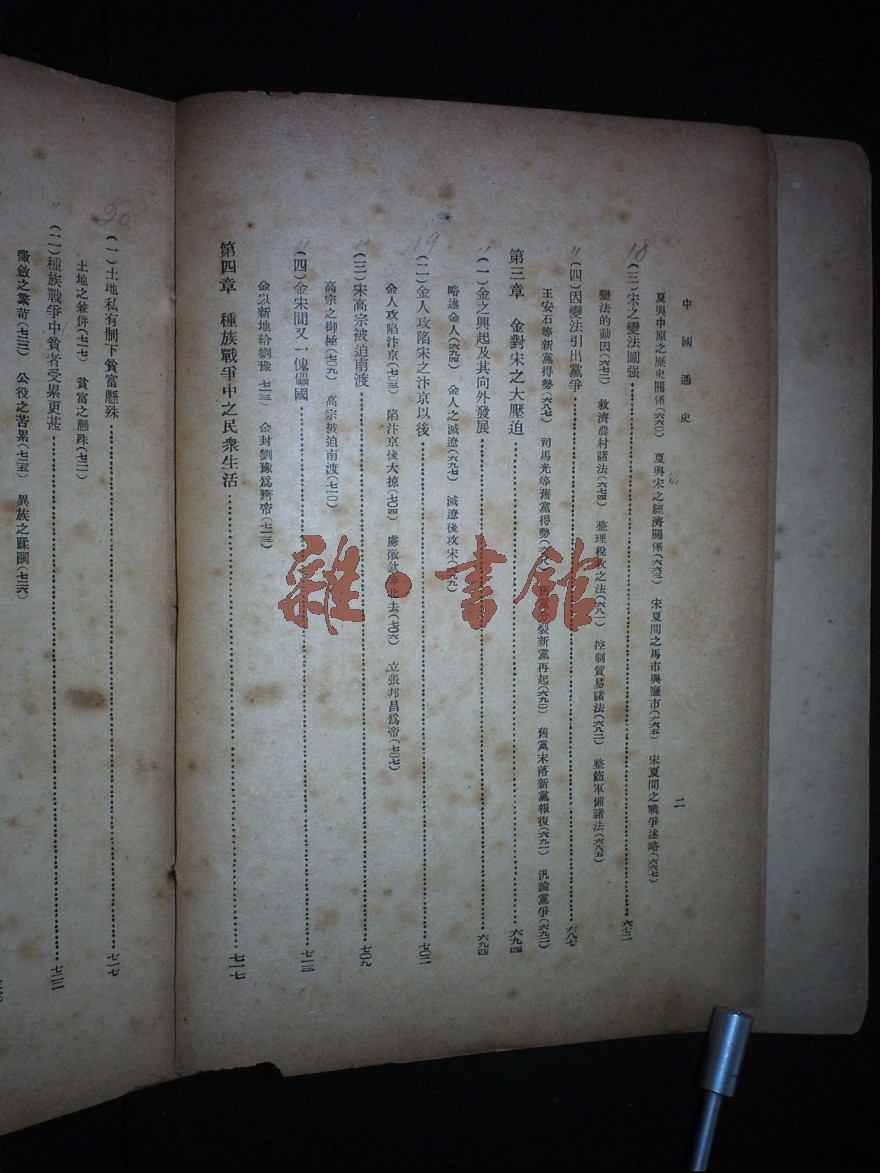 中國通史
二
夏與中原之歷史關係(六六〇) 夏與宋之經濟關係(六六三) 宋夏間之馬市與鹽市(六六五) 宋夏間之戰爭述略(六六七)
18
(三)宋之變法圖强 六七二
變法的動因(六七二) 救濟農村諸法(六七四) 整理稅收之法(六八一) 控制貿易諸法(六八二) 整飭軍備諸法(六八五)
〃(四)因變法引出黨爭 六八七
王安石等新黨得勢(六八七) 司馬光等舊黨得勢 新黨再起(六九〇) 舊黨末落新黨報復(六九一) 汎論黨爭(六九二)
第三章 金對宋之大壓迫 六九四
〃(一)金之興起及其向外發展 六九四
略述金人(六九四) 金人之滅遼(六九七) 滅遼後攻宋(六九九)
19
(二)金人攻陷宋之汴京以後 七〇二
金人攻陷汴京(七〇二) 陷汴京後大掠(七〇四) 虜徽欽 北去(七〇六) 立張邦昌爲帝(七〇七)
〃(三)宋高宗被迫南渡 七〇九
高宗之御極(七〇九) 高宗被迫南渡(七一〇)
〃(四)金宋間又一傀儡國 七一三
金以新地給劉豫(七一三) 金封劉豫爲齊帝(七一三)
第四章 種族戰爭中之民衆生活 七一七
20
(一)土地私有制下貧富懸殊 七一七
土地之兼併(七一七) 貧富之懸殊(七二一)
〃(二)種族戰爭中貧者受累更甚 七二二
徵斂之繁苛(七二二) 公役之苦累(七二五) 異族之蹂躪(七二六)
雜·書館